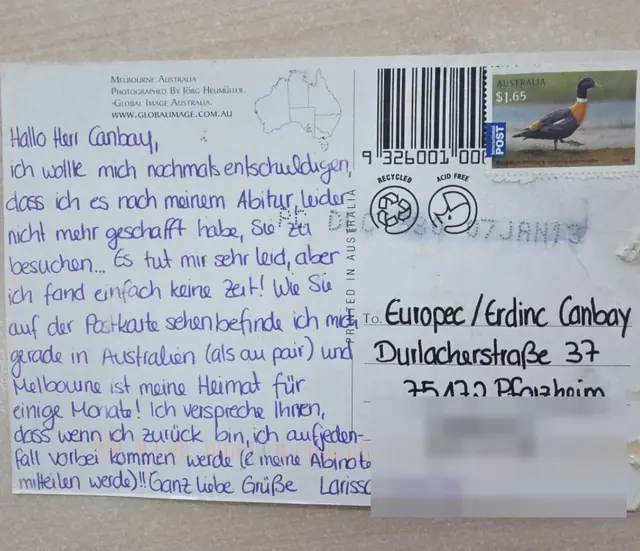 MELBOURNE AUSTRALIA
PHOTOGRAPHED BY JÖRG HEUMÜLLER.
GLOBAL IMAGE AUSTRALIA.
WWW.GLOBALIMAGE.COM.AU
Hallo Herr Canbay,
ich wollte mich nochmals entschuldigen,
dass ich es nach meinem Abitur, leider
nicht mehr geschafft habe, Sie zu
besuchen... Es tut mir sehr leid, aber
ich fand einfach keine Zeit! Wie Sie
auf der Postkarte sehen befinde ich mich
gerade in Australien (als au pair) und
Melbourne ist meine Heimat für
einige Monate! Ich verspreche Ihnen,
dass wenn ich zurück bin, ich aufjeden-
fall vorbei kommen werde (& meine Abinote
mitteilen werde)!! Ganz liebe Grüße Larissa
PRINTED IN AUSTRALIA
9 326001 000
RECYCLED
ACID FREE
AUSTRALIA
$1.65
International
POST
07JAN13
To
Europec/Erdinc Canbay
Durlacherstraße 37
75172 Pforzheim